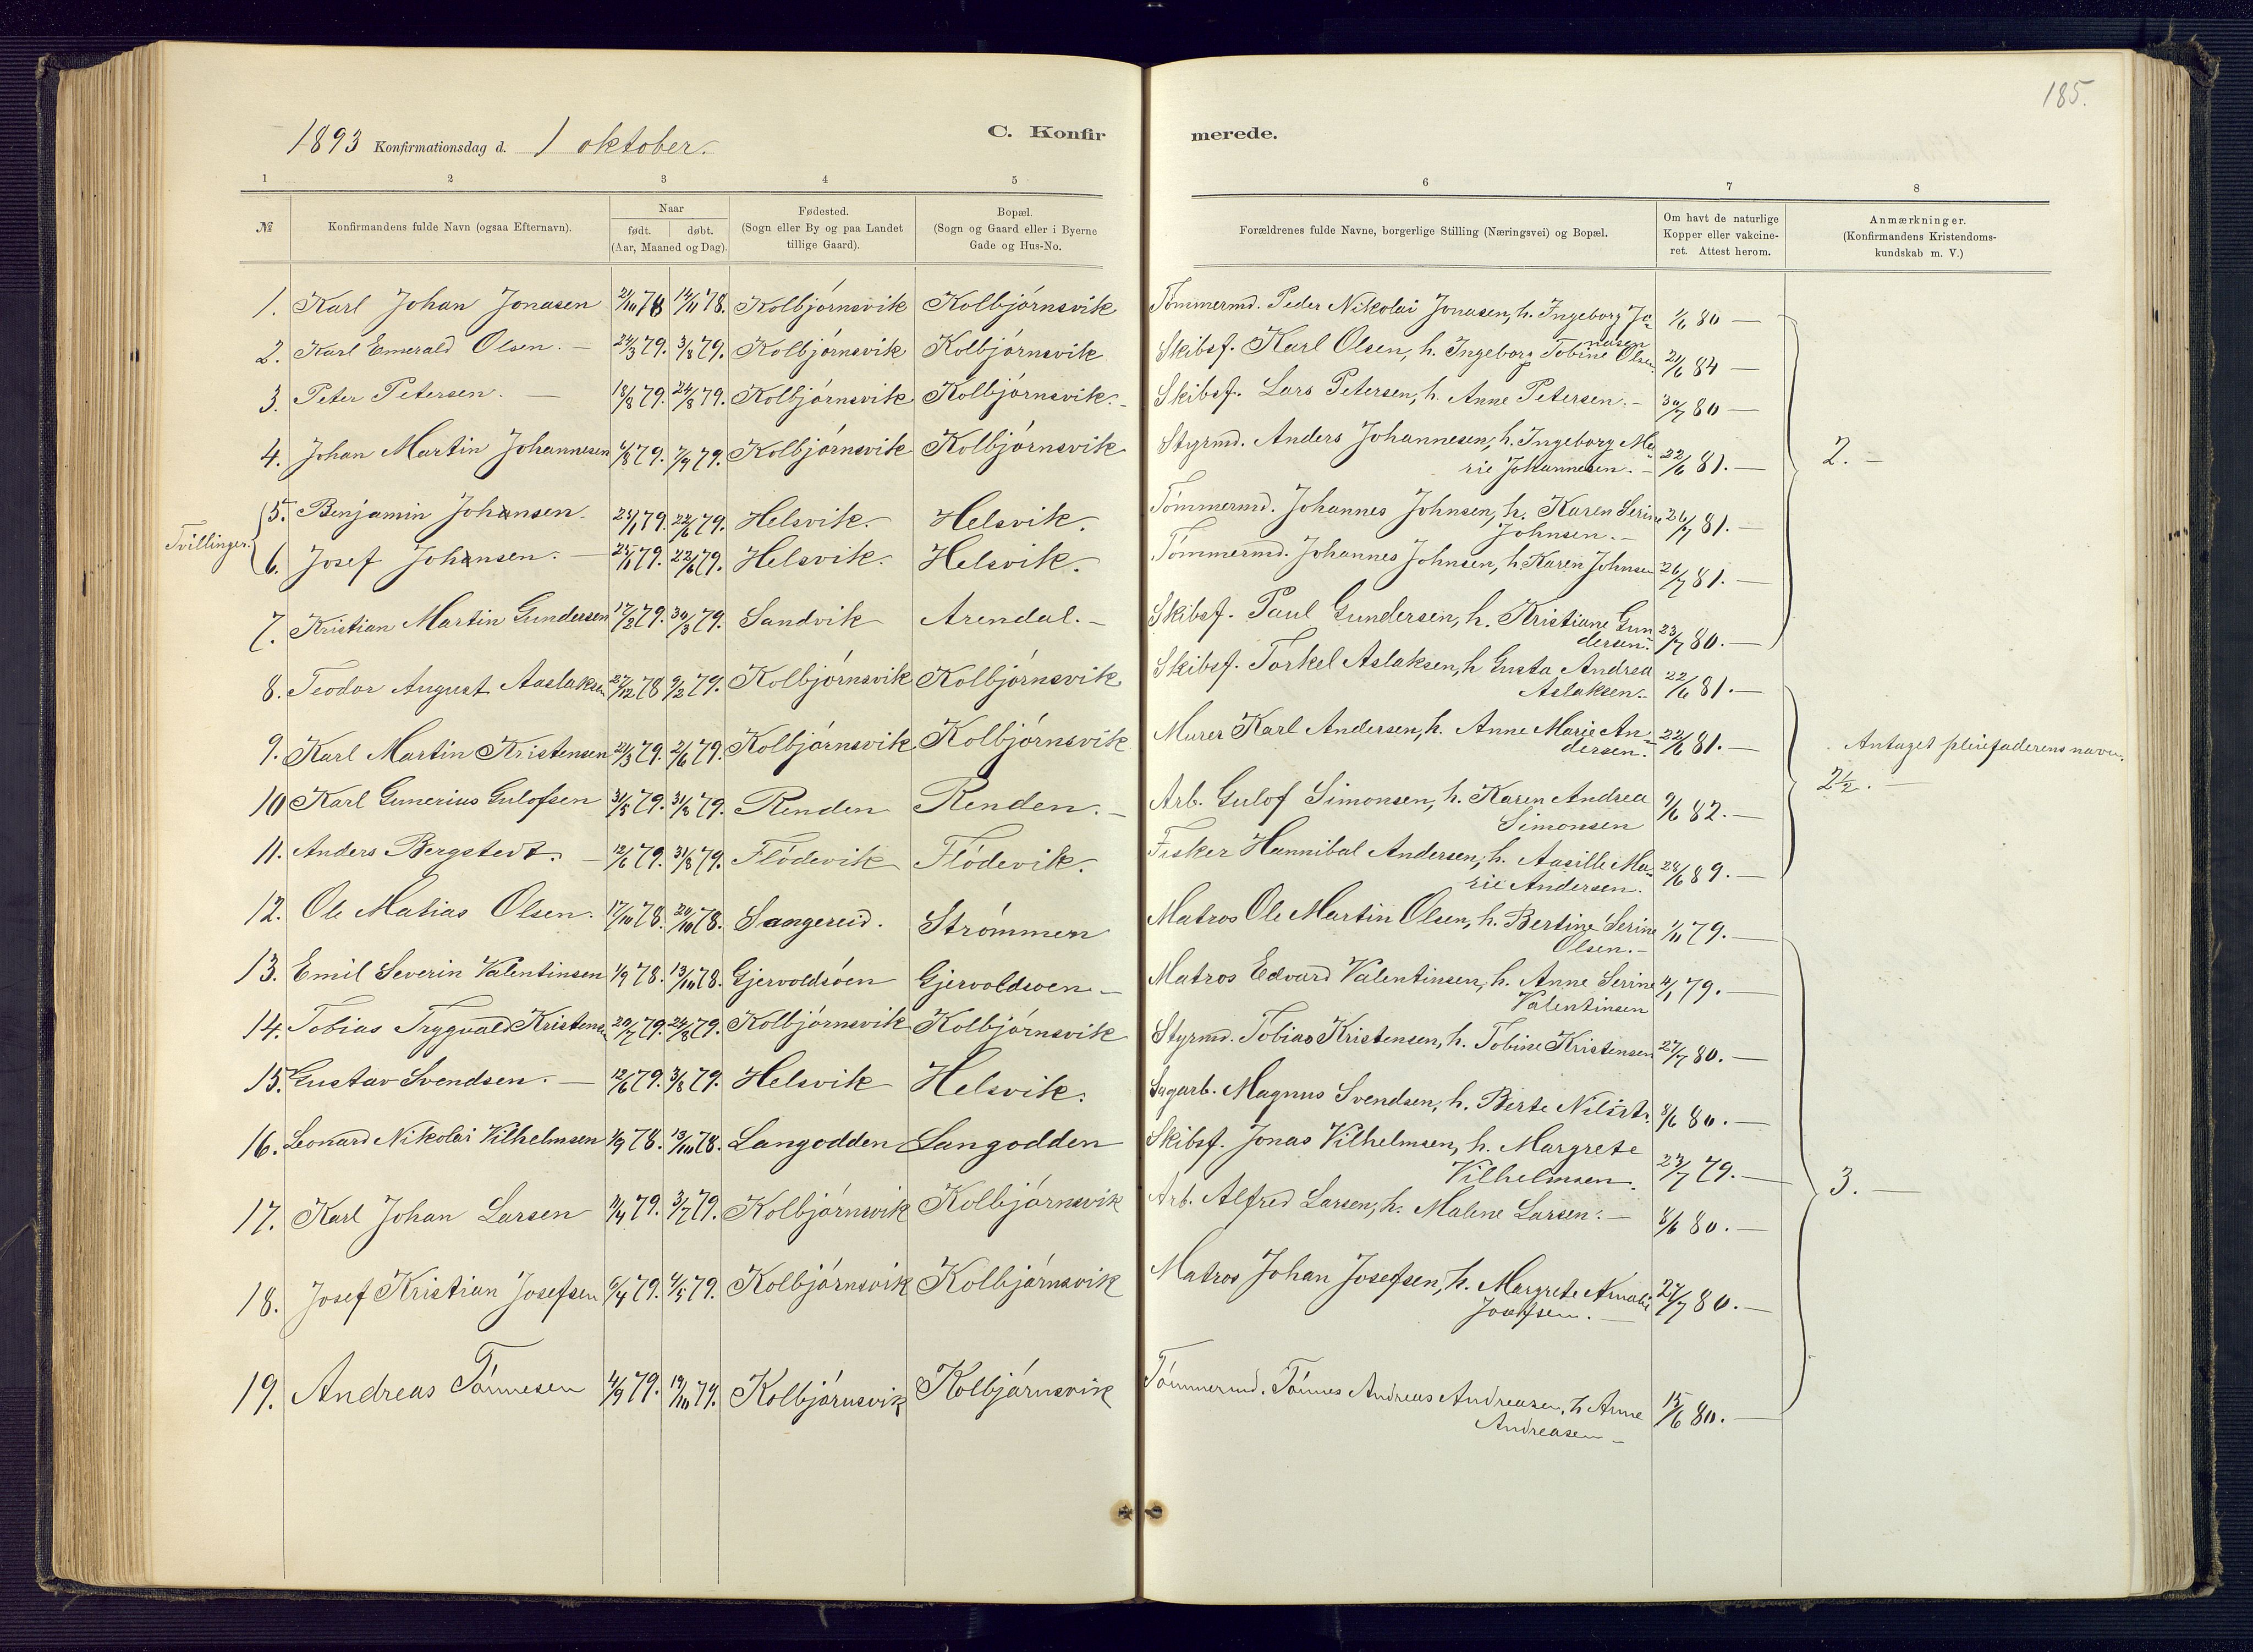 185.
1893 Konfirmationsdag d. 1 oktober.
C. Konfirmerede.
1 2 3 4 5 6 7 8
№
Konfirmandens fulde Navn (ogsaa Efternavn).
Naar
født. døbt.
(Aar, Maaned og Dag).
Fødested.
(Sogn eller By og paa Landet
tillige Gaard).
Bopæl.
(Sogn og Gaard eller i Byerne
Gade og Hus-No.
Forældrenes fulde Navne, borgerlige Stilling (Næringsvei) og Bopæl.
Om havt de naturlige
Kopper eller vakcine-
ret. Attest herom.
Anmærkninger.
(Konfirmandens Kristendoms-
kundskab m. V.)
1. Karl Johan Jonasen 78 78. Kolbjórnsvik Kolbjórnsvik Tömmermd. Peder Nikolai Jonasen, h. Ingeborg Jo-
nasen 1/6 80 —
2. Karl Emerald Olsen. — 79. 3/8 79. Kolbjórnsvik Kolbjórnsvik Skibsf. Karl Olsen, h. Ingeborg Tobine Olsen. 21/6 84 —
3. Peter Petersen. — 18/8 79. 24/8 79. Kolbjórnsvik Kolbjórnsvik. Skibsf. Lars Petersen, h. Anne Petersen. — 30/7 80 —
4. Johan Martin Johannesen 79. 7/9 79. Kolbjórnsvik Kolbjórnsvik Styrmd. Anders Johannesen, h. Ingeborg Ma-
rie Johannesen. — 22/6 81. —
2. —
Tvillinger.
5. Benjamin Johnsen. 79. 22/6 79. Helsvik. Helsvik. Tömmermd. Johannes Johnsen, h. Karen Serine
Johnsen. — 26/7 81. —
6. Josef Johnsen. — 79. 22/6 79. Helsvik. Helsvik. Tömmermd. Johannes Johnsen, h. Karen Johnsen 26/7 81. —
7. Kristian Martin Gundersen 17/2 79. 30/3 79. Sandvik Arendal. — Skibsf. Paul Gundersen, h. Kristiane Gun-
dersen. 23/7 80. —
8. Teodor August Aaslaksen 27/12 78 9/2 79. Kolbjórnsvik Kolbjórnsvik Skibsf. Torkel Aslaksen, h. Gusta Andrea
Aslaksen. 22/6 81. —
9. Karl Martin Kristensen 21/3 79. 2/6 79. Kolbjórnsvik Kolbjórnsvik Murer Karl Andersen, h. Anne Marie An-
dersen. 22/6 81. — Antaget pleiefaderens navn.
2½. —
10 Karl Gunerius Gulofsen 31/5 79. 31/8 79. Renden Renden. — Arb. Gulof Simonsen, h. Karen Andrea
Simonsen 9/6 82. —
11. Anders Bergstedt. — 12/6 79. 31/8 79. Flódevik Flódevik. Fisker Hannibal Andersen, h. Aasille Ma-
rie Andersen. 28/6 89. —
12. Ole Matias Olsen. 17/10 78. 20/10 78. Sangereid. Strómmen Matros Ole Martin Olsen, h. Bertine Serine
Olsen. — 1/11 79. —
13. Emil Severin Valentinsen 1/9 78. 13/10 78. Gjervoldsóen Gjervoldsoen — Matros Edvard Valentinsen, h. Anne Serine
Valentinsen 79. —
14. Tobias Trygvald Kristensen 20/7 79. 24/8 79. Kolbjórnsvik Kolbjórnsvik Styrmd. Tobias Kristensen, h. Tobine Kristensen 27/7 80. —
15. Gustav Svendsen. — 12/6 79. 3/8 79. Helsvik Helsvik. Sagarb. Magnus Svendsen, h. Berte Nilsdtr. 8/6 80. —
16. Leonard Nikolai Vilhelmsen 1/9 78. 13/10 78. Langodden Langodden Skibsf. Jonas Vilhelmsen, h. Margrete
Vilhelmsen. 23/7 79. —
3. —
17. Karl Johan Larsen 79. 3/7 79. Kolbjórnsvik Kolbjórnsvik Arb. Alfred Larsen, h. Malene Larsen. — 8/6 80. —
18. Josef Kristian Josefsen 6/4 79. 4/5 79. Kolbjórnsvik Kolbjórnsvik Matros Johan Josefsen, h. Margrete Amalie
Josefsen. — 27/7 80. —
19. Andreas Tónnesen 4/9 79. 19/10 79. Kolbjórnsvik Kolbjórnsvik Tömmermd. Tónnes Andreas Andreasen, h Anne
Andreasen — 15/6 80. —